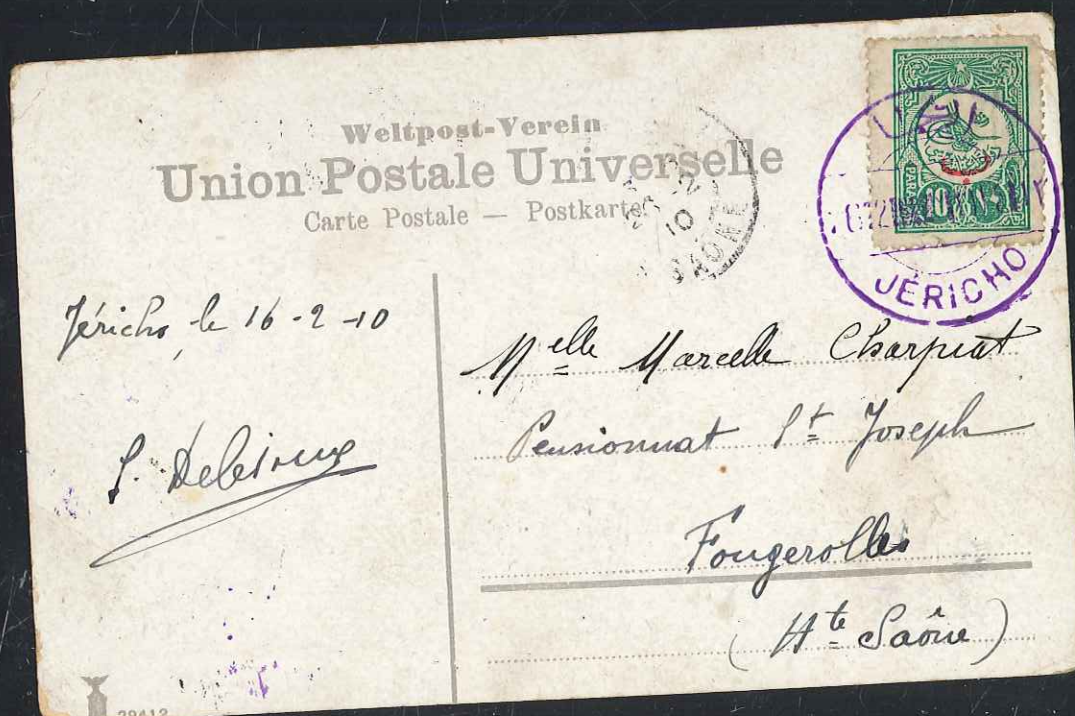 Weltpost-Verein
Union Postale Universelle
Carte Postale — Postkarte
10
SAÔNE
PARAS
10
JÉRICHO
Jéricho, le 16-2-10
Melle Marcelle Charpiat
Pensionnat St Joseph
Fougerolles
(Hte Saône)
39412